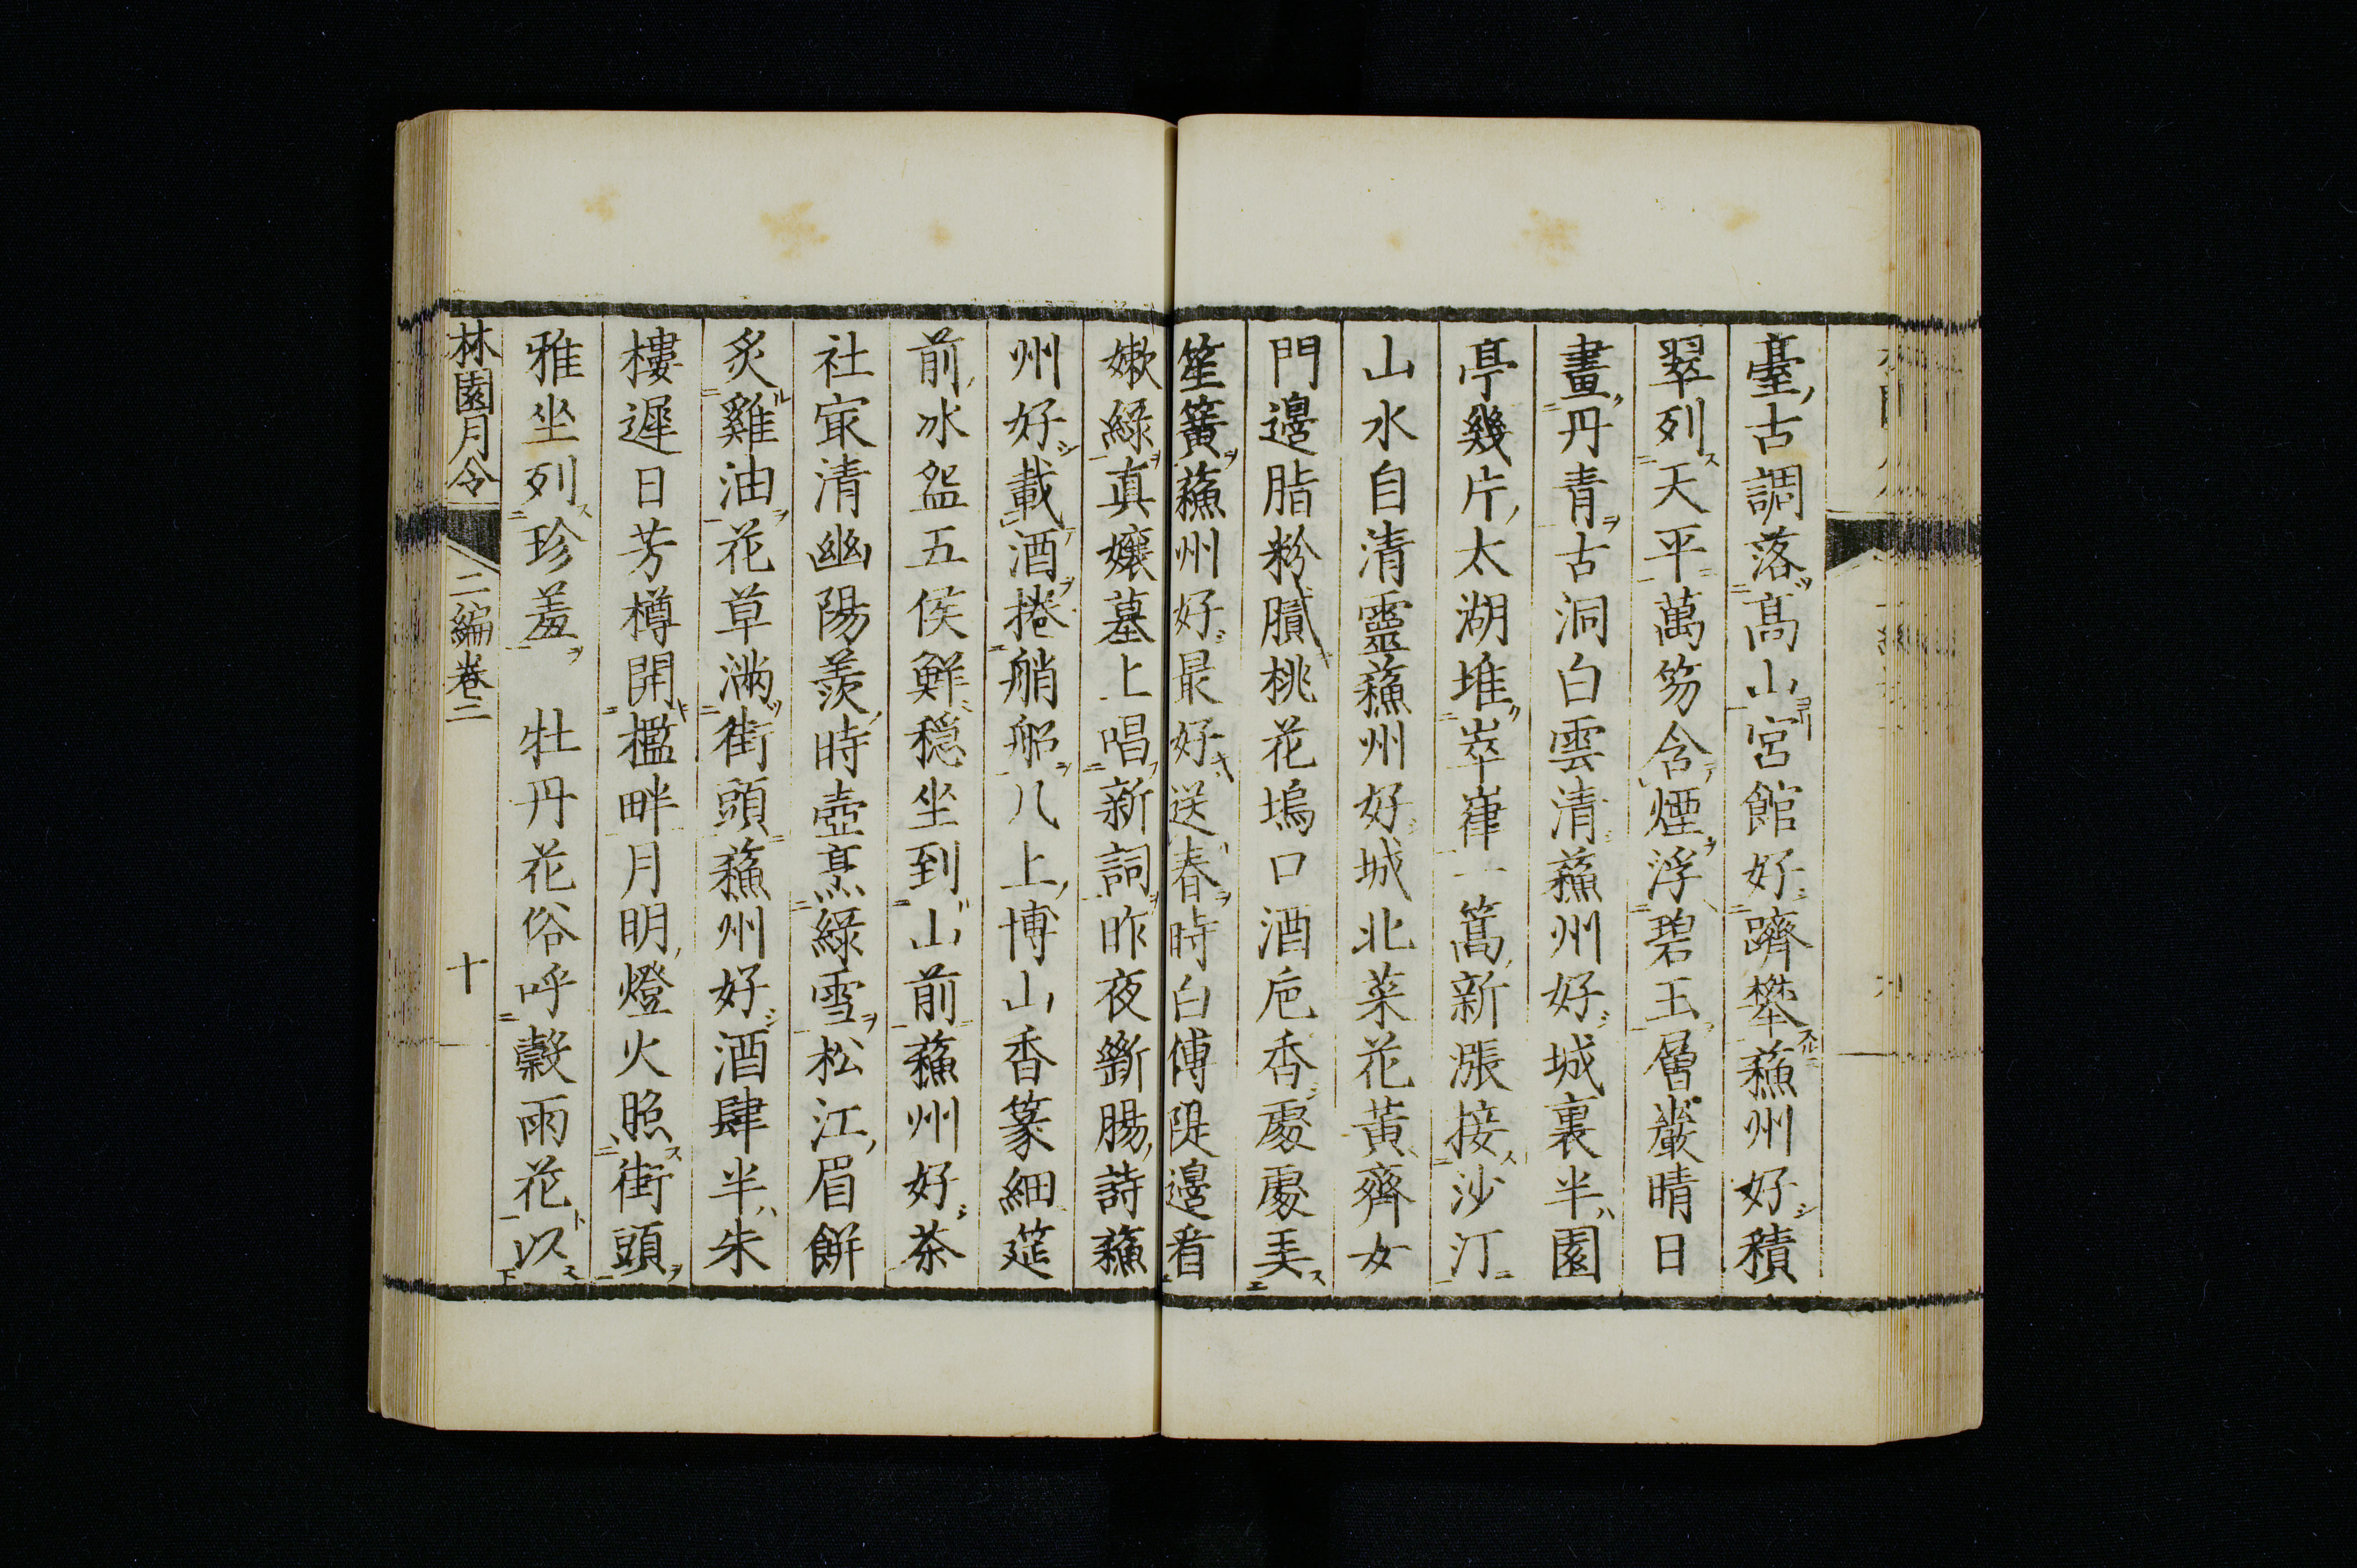 臺古調落高山宮館好躋攀蘓州好積
翠列天平萬笏含煙浮碧玉層巖晴日
畫丹青古洞白雲清蘓州好城裏半園
亭幾片太湖堆崒嵂一篙新漲接沙汀
山水自清靈蘓州好城北菜花黃齊女
門邊脂粉膩桃花塢口酒巵香處處美
笙簧蘓州好最好送春時白傅隄邊看
嫩綠真孃墓上唱新詞昨夜斷腸詩蘓
州好載酒捲艄船八上博山香篆細筵
前冰盌五侯鮮穩坐到山前蘓州好茶
社㝡清幽陽羨時壺烹綠雪松江眉餅
炙雞油花草滿街頭蘓州好酒肆半朱
樓遲日芳樽開檻畔月明燈火照街頭
雅坐列珍羞　牡丹花俗呼穀雨花以
林園月令　二編卷二　十